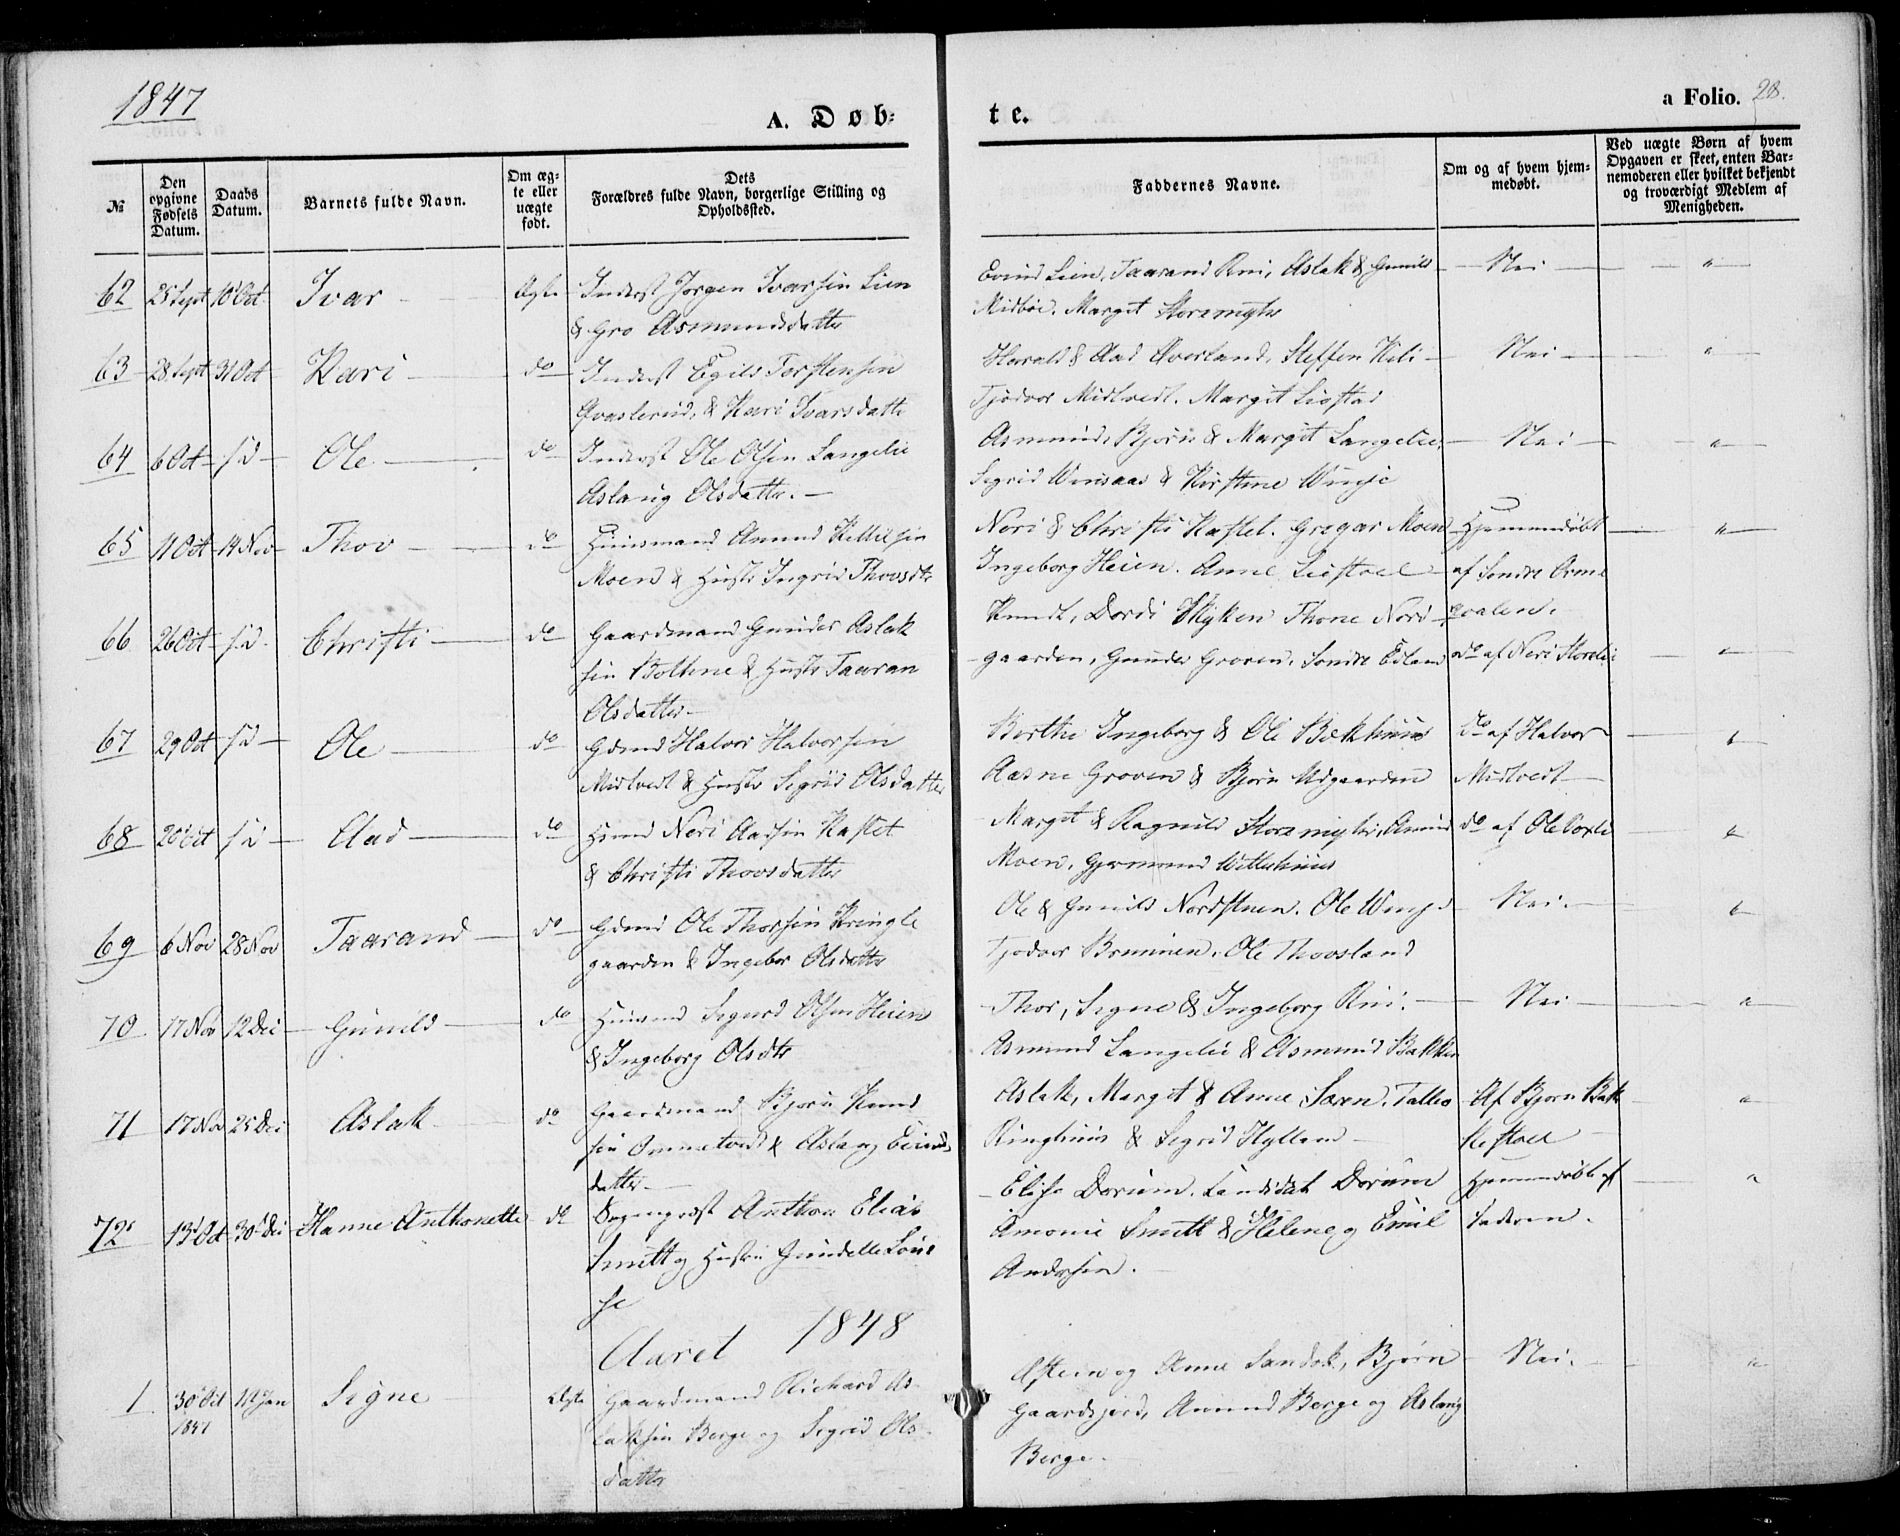 1847
A. Døb-
te.
a Folio. 28.
№
Den opgivne Fødsels Datum.
Daabs Datum.
Barnets fulde Navn.
Om ægte eller uægte født.
Dets Forældres fulde Navn, borgerlige Stilling og Opholdssted.
Faddernes Navne.
Om og af hvem hjemmedøbt.
Ved uægte Børn af hvem Opgaven er skeet, enten Barnemoderen eller hvilket bekjendt og troværdigt Medlem af Menigheden.
62 25 Sept 10 Oct Ivar Ægte Inderst Jørgen Ivarsen Lien
& Gro Asmundsdatter
Evind Lien, Taarand Rui, Aslak & Gunild
Midbøe, Margit Storemyhr
Nei "
63 28 Sept 31 Oct Kari do Inderst Egild Torstensen
Qvaslerud, & Kari Ivarsdatter
Harald & Aad Averland, Steffen Kili
Tjodvor Midtvedt, Margit Listad
Nei "
64 6 Oct s d Ole do Inderst Ole Olsen Langelie
Aslaug Olsdatter.
Asmund, Bjørn & Margit Langelie,
Sigrid Winsaas & Kirstine Winje
Nei "
65 11 Oct 14 Nov Thov do Huusmand Amund Kittilsen
Moen & Hustr Ingrid Thovsdtr
Neri & Christi Kastet, Gregar Moen
Ingeborg Heien. Anne Listoel
Hjemmedøbt
af Sondre Orme
qvalen.
"
66 26 Oct s d. Christi do Gaardmand Gunder Aslak
sen Bothne & Hustr Taaran
Olsdatter
Knudt, Dordi Skyken Thone Nord
gaarden, Gunder Groven, Sondre Edland
do af Neri Storelie "
67 29 Oct s d Ole do Gdmd Halvor Halvorsen
Midtvedt & Hustr Sigrid Olsdatter
Berthe Ingeborg & Ole Bækhuus
Aasne Groven & Bjørn Udgaarden
do af Halvor
Midtvedt
"
68 20 Oct s d Aad do Hsmd Neri Aadsen Kastet
& Christi Thovsdatter
Margit & Ragnild Storemyhr, Amund
Moen, Gjermund Wetterhuus
do af Ole Boxle "
69 6 Nov 28 Nov Taarand do Gdmd Ole Thorsen Kringle
gaarden & Ingebor Olsdatter
Ole & Gunild Nordstuen. Ole Winje
Tjodvor Brunnen, Ole Thovsland
Nei. "
70 17 Nov 12 Dec Gunild do Huusmd Sigurd Olsen Heien
& Ingeborg Olsdtr
Thor, Signe & Ingeborg Rui.
Asmund Langelie & Asmund Bakken
Nei "
71 17 Nov 25 Dec Aslak do Gaardmand Bjørn Knud
sen Ommetvedt & Aslaug Eivinds
datter
Aslak, Margit & Anne Særen, Tallev
Ringhuus & Sigrid Hylland
Af Bjørn Bak
kestoel
"
72 13 Oct 30 Dec Hanne Anthonette do Sogneprest Anthon Elias
Smitt og Hustru Gundelle Loui
se
Elise Dorum. Candidat Dorum
Amonie Smitt & Helene og Emil
Andersen.
Hjemmedøbt af
Faderen.
"
Aaret 1848
1 30 Oct 1847 Jan Signe Ægte Gaardmand Richard As
laksen Berge og Sigrid Ols
datter
Østein og Anne Sandok, Bjørn
Gaardsjord, Amund Berge og Aslaug
Berge.
Nei. "